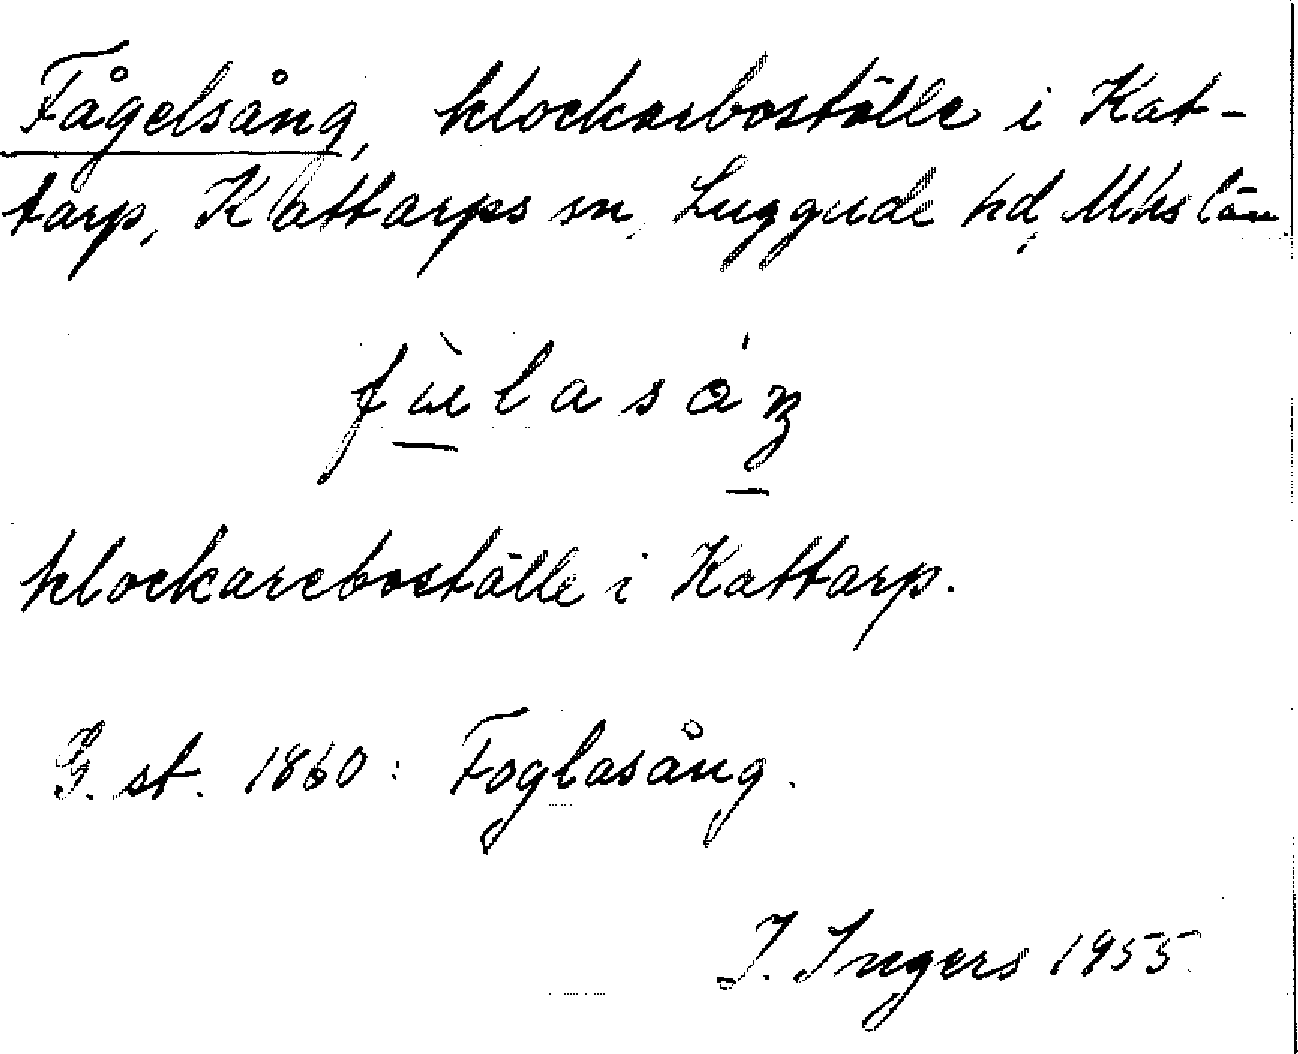 Fågelsång, klockarboställe i Kat-
tarp, Kattarps sn, Luggude hd, Mhs län.
klockareboställe i Kattarp.
G. st. 1860: Foglasång.
I. Ingers 1955